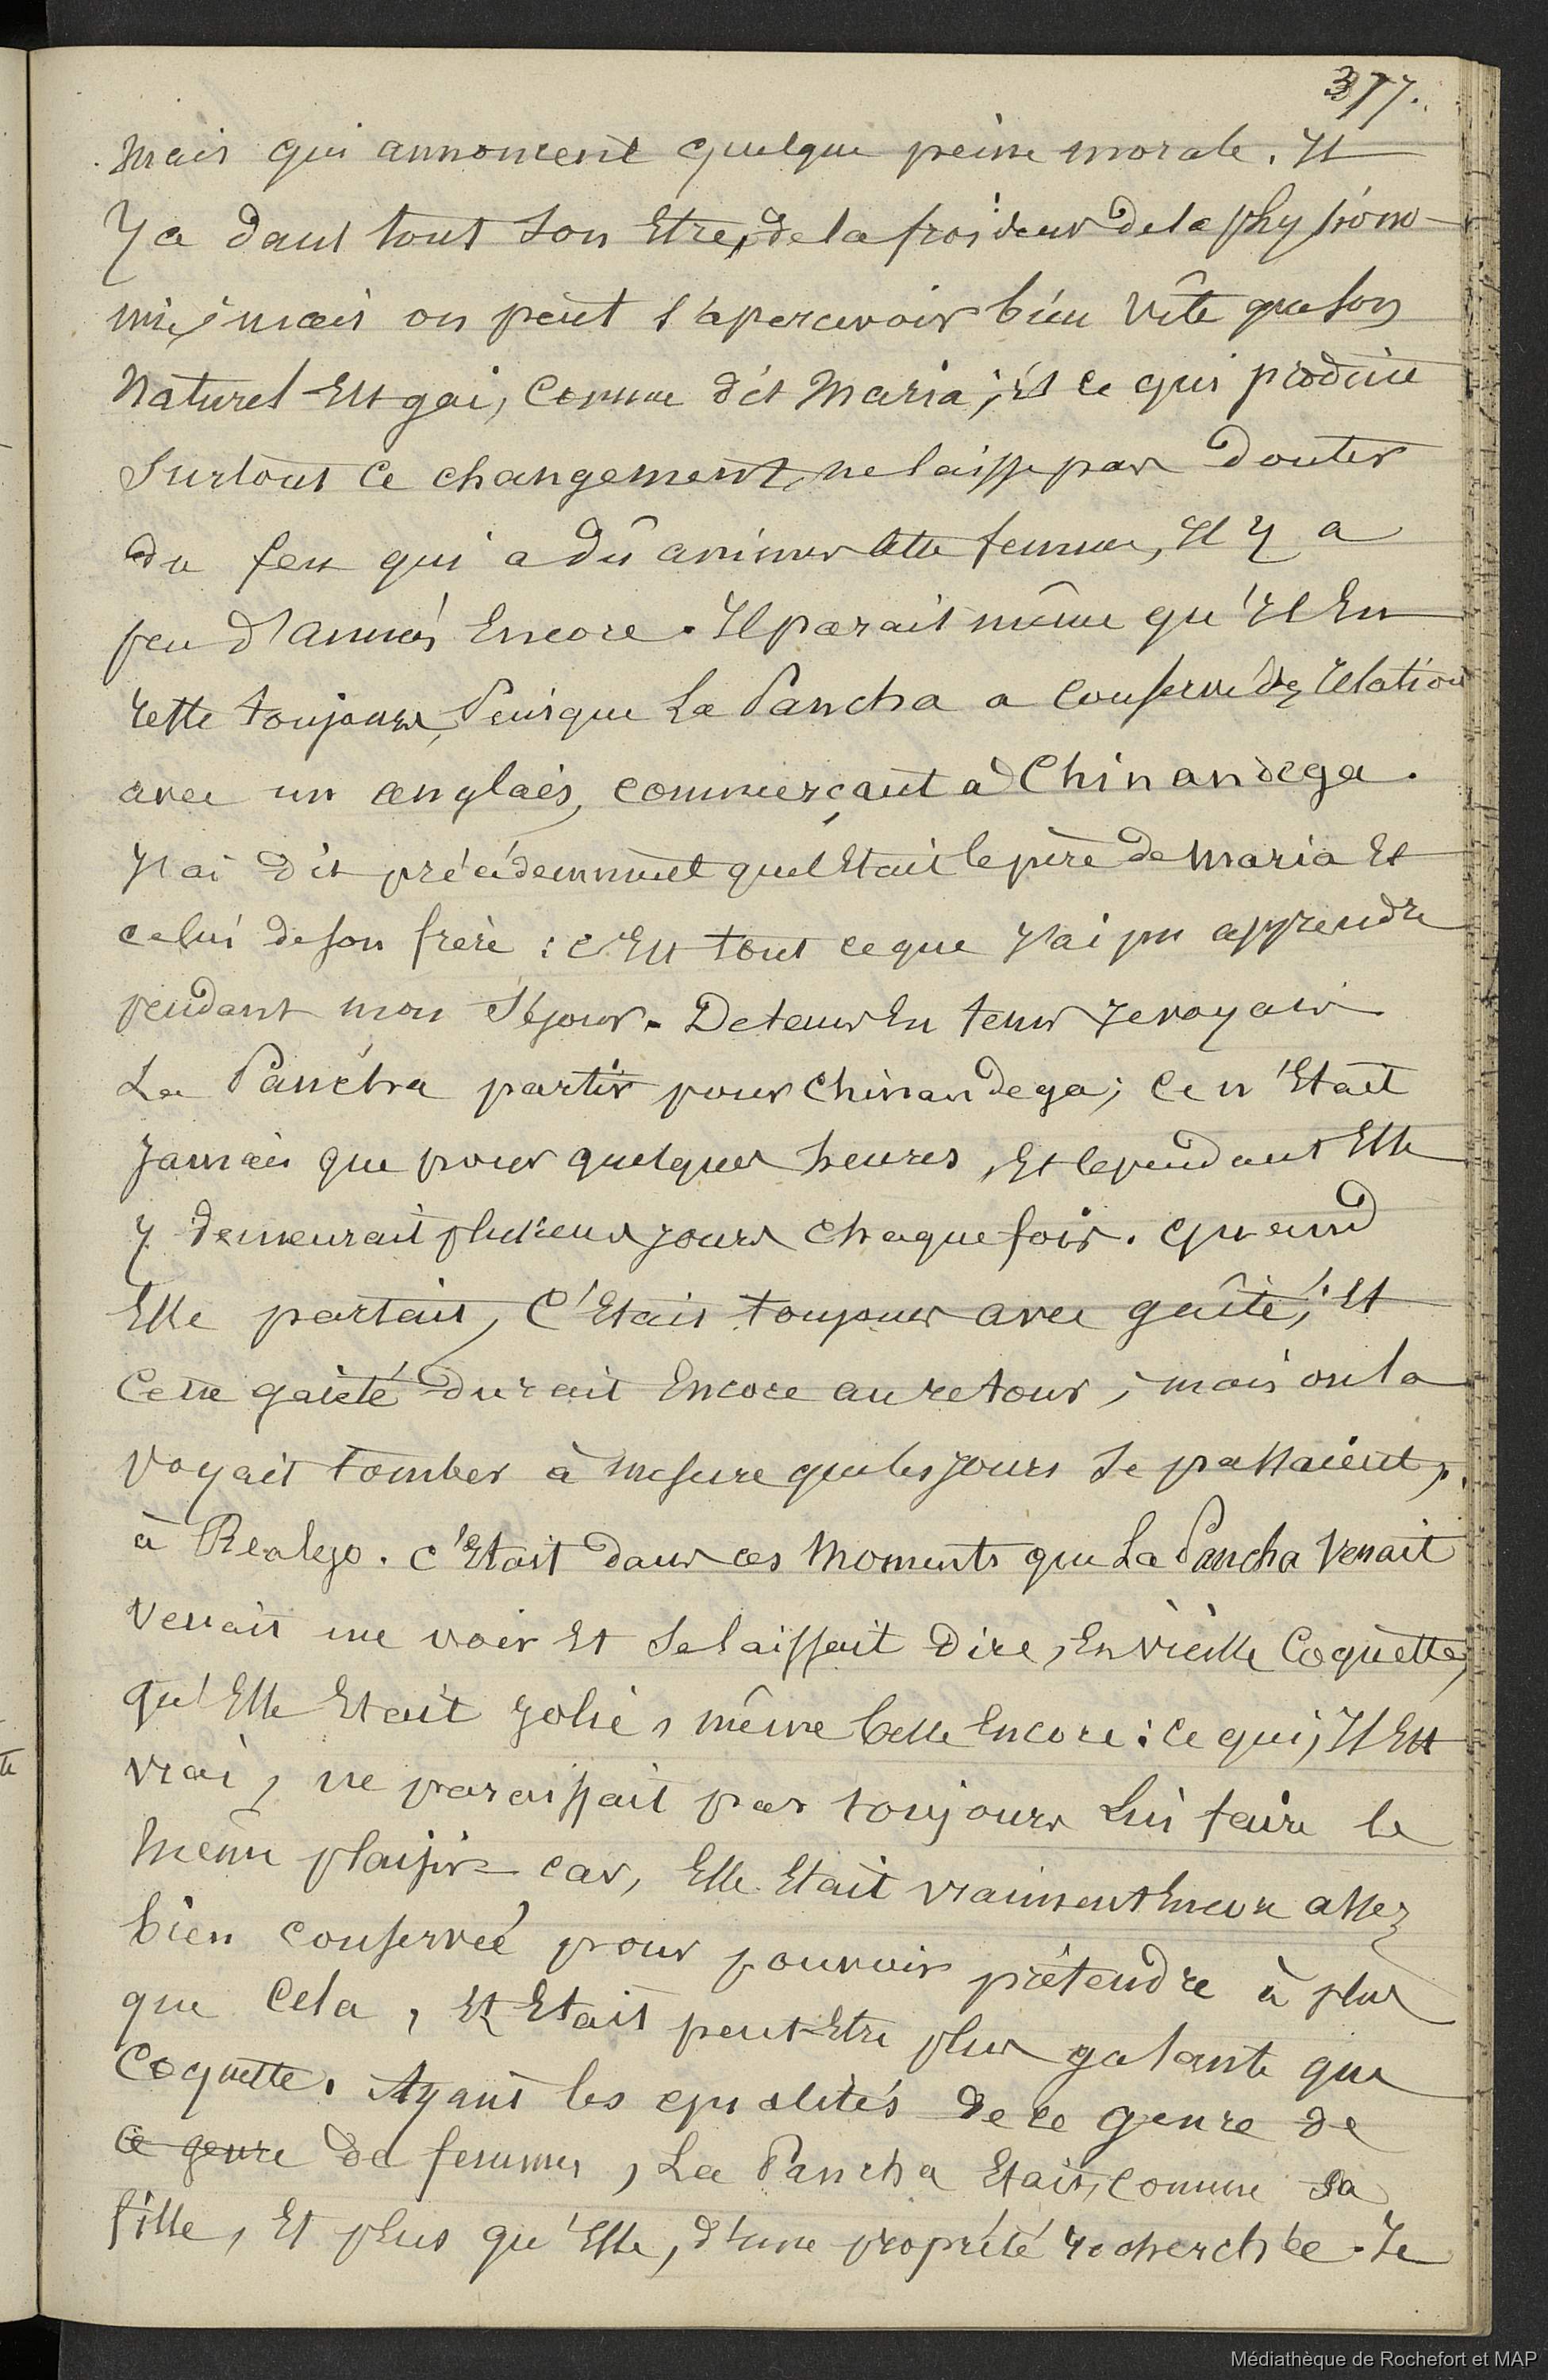 377.
mais qui annoncent quelque peine morale. Il
Y a dans tout son Etre, de la froideur de la physiono-
mie; mais on peut s'apercevoir bien vîte que son
Naturel Est gai, Comme dit Maria; Et ce qui produit
Surtout Ce changement, ne laisse pas Douter
du feu qui a dû animer cette femme, Il y a
peu d'années Encore. Il parait même qu'Il En
reste toujours, Puisque La Pancha a Conservé des relations
avec un anglais, commerçant à Chinandega.
J'ai Dit précédemment quel Etait le père de Maria Et
celui de son frère : c'Est tout ce que J'ai pu apprendre
pendant mon Séjour. De tems En tems Je voyais
La Pancha partir pour Chinandega; Ce n'Etait
Jamais que pour quelques heures, Et cependant Elle
y demeurait plusieurs jours chaque fois. Quand
Elle partait, C'Etait toujours avec gaîté; Et
Cette gaieté durait Encore au retour; mais on la
Voyait tomber à mesure que les jours Se passaient,
à Realejo. C'Etait dans ces Moments que La Pancha Venait
Venait me voir Et Se laissait Dire, En vieille Coquette,
qu'Elle Etait Jolie, même belle Encore : ce qui, Il Est
vrai, ne paraissait pas toujours Lui faire le
même plaisir car, Elle Etait vraiment Encore assez
bien conservée pour pouvoir prétendre à plus
que Cela, Et Etait peut-Etre plus galante que
Coquette. Ayant les qualités de ce genre de
ce genre de femmes, La Pancha Etait, comme sa
fille, Et plus qu'Elle, d'une propreté recherchée. Je
Médiathèque de Rochefort et MAP